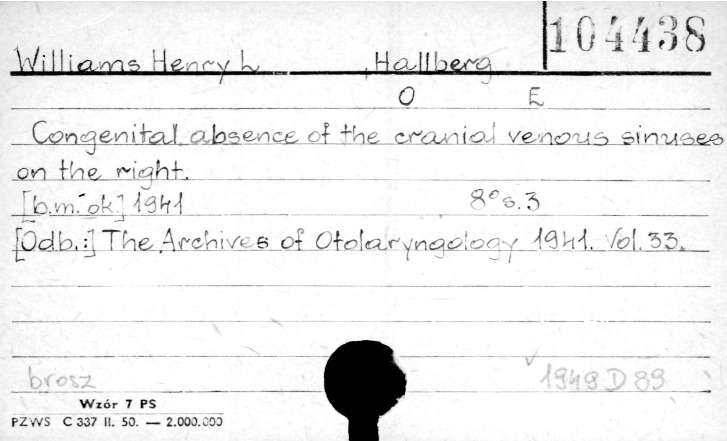 104438
Williams Henry L , Hallberg
O E
Congenital absence of the cranial venous sinuses
on the right.
[b.m. ok] 1941 8° s. 3
[Odb.:] The Archives of Otolaryngology 1941. Vol. 33.
brosz 1949 D 89
Wzór 7 PS
PZWS C 337 II. 50. — 2.000.000